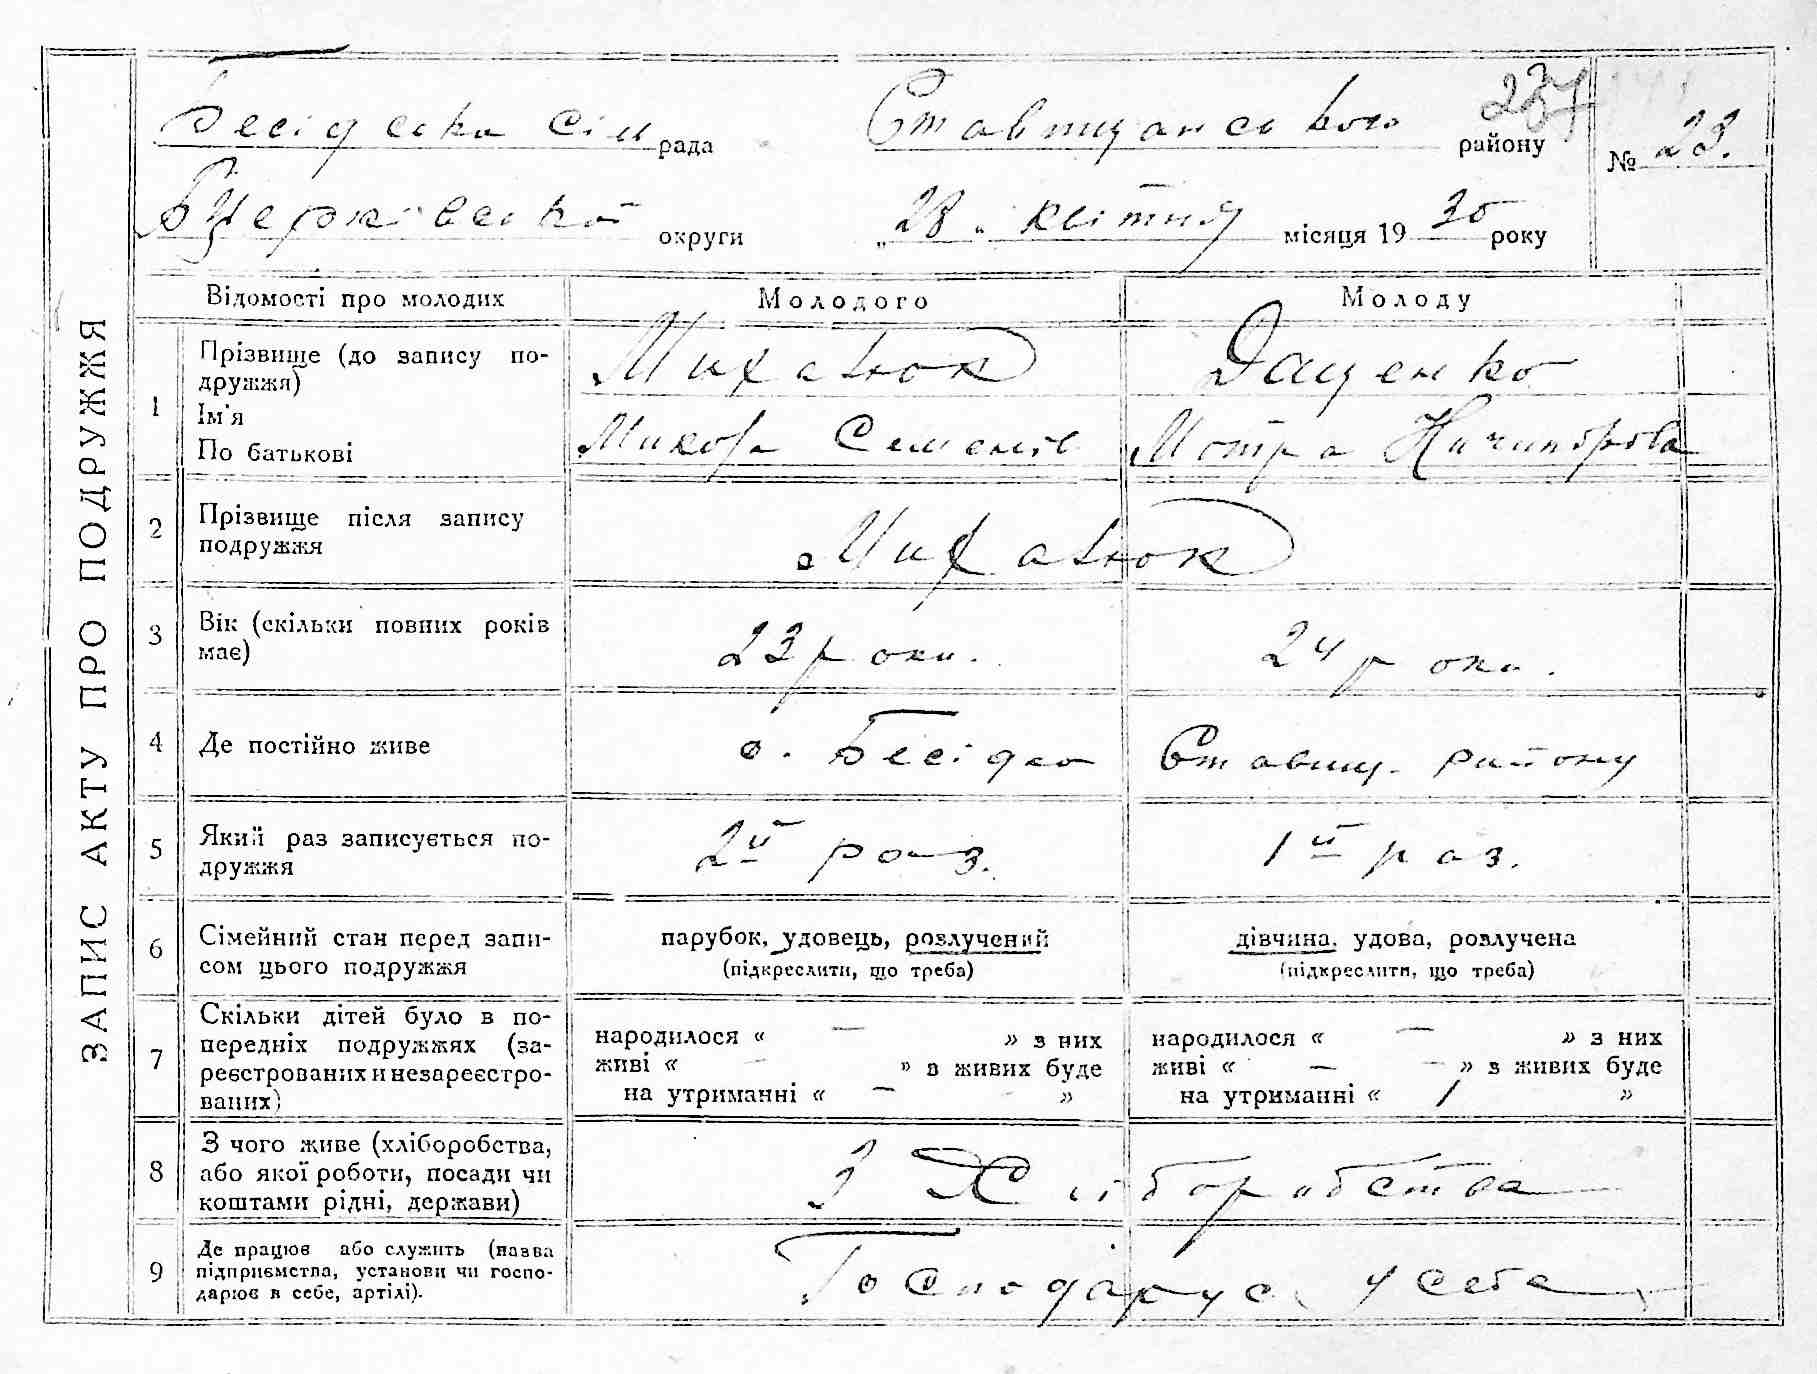 Бесідська сіл рада Ставищанського району № 23.
Бцерківської округи „28„ квітня місяця 1930 року
ЗАПИС АКТУ ПРО ПОДРУЖЖЯ
Відомості про молодих Молодого Молоду
1 Прізвище (до запису по-
дружжя) Михалюк Даценко
Ім'я
По батькові Микола Семенів Мотря Ничипорова
2 Прізвище після запису
подружжя Михалюк
3 Вік (скільки повних років
має) 23 роки. 24 роки.
4 Де постійно живе с. Бесідка Ставищ. району
5 Який раз записується по-
дружжя 2й раз. 1й раз.
6 Сімейний стан перед запи-
сом цього подружжя
парубок, удовець, розлучений дівчина, удова, розлучена
(підкреслити, що треба) (підкреслити, що треба)
7 Скільки дітей було в по-
передніх подружжях (за-
реєстрованих и незареєстро-
ваних)
народилося « — » з них народилося « — » з них
живі « — » з живих буде живі « — — » з живих буде
на утриманні « — » на утриманні « / »
8 З чого живе (хліборобства,
або якої роботи, посади чи
коштами рідні, держави) З Хліборобства
9 Де працює або служить (назва
підприємства, установи чи госпо-
дарює в себе, артілі). Господарює у себе